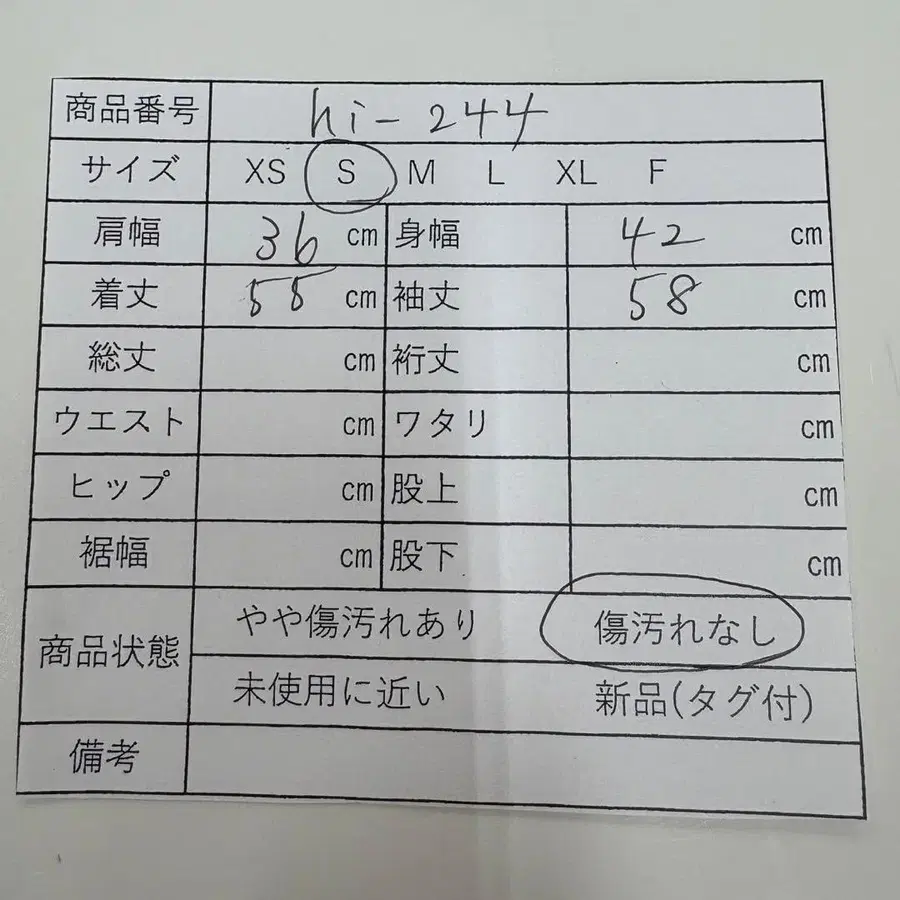 商品番号 hi-244
サイズ XS S M L XL F
肩幅 36 cm 身幅 42 cm
着丈 55 cm 袖丈 58 cm
総丈 cm 裄丈 cm
ウエスト cm ワタリ cm
ヒップ cm 股上 cm
裾幅 cm 股下 cm
商品状態 やや傷汚れあり 傷汚れなし
未使用に近い 新品(タグ付)
備考